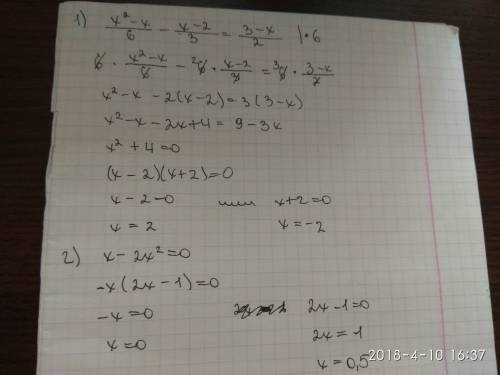 1) (x²-x)/6 - (x-2)/3 = (3-x)/2 |·6
6 · (x²-x)/6 - ²6 · (x-2)/3 = ³6 · (3-x)/2
x²-x - 2(x-2) = 3(3-x)
x²-x-2x+4 = 9-3x
x²+4=0
(x-2)(x+2)=0
x-2=0 или x+2=0
x=2 x=-2
2) x-2x²=0
-x(2x-1)=0
-x=0 2x-1=0
x=0 2x=1
x=0,5
2018-4-10 16:37